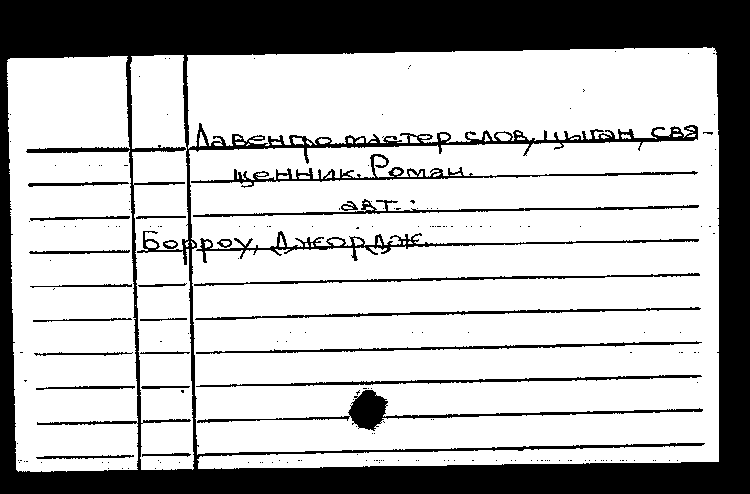 Лавенгро мастер слов, цыган, свя-
щенник. Роман.
авт.:
Борроу, Джордж.